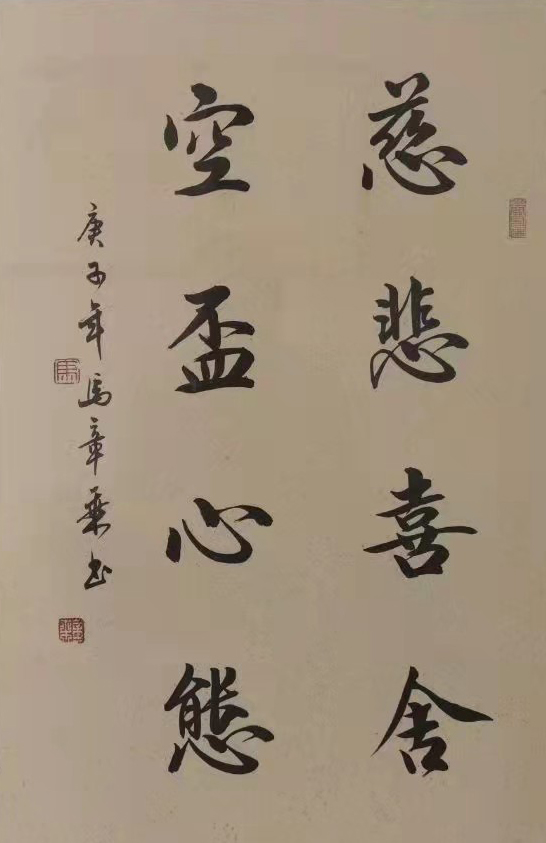 慈悲喜舍
空盃心態
庚子年馬章乘书